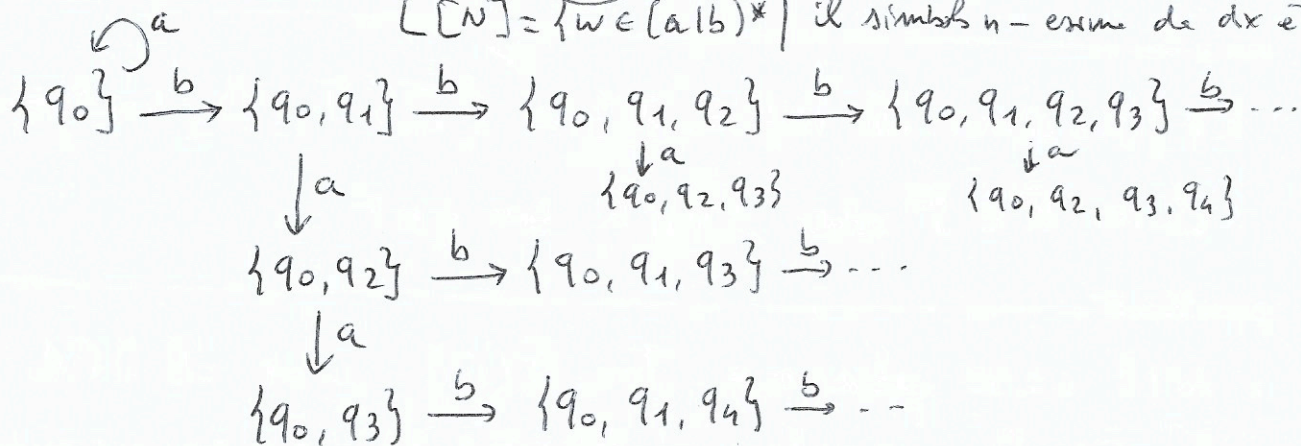 L[N] = {w ∈ (a|b)* | il simbolo n-esimo da dx è
a
{q0} b→ {q0, q1} b→ {q0, q1, q2} b→ {q0, q1, q2, q3} b→ ...
↓a ↓a ↓a
{q0, q2, q3} {q0, q2, q3, q4}
{q0, q2} b→ {q0, q1, q3} b→ ...
↓a
{q0, q3} b→ {q0, q1, q4} b→ ..